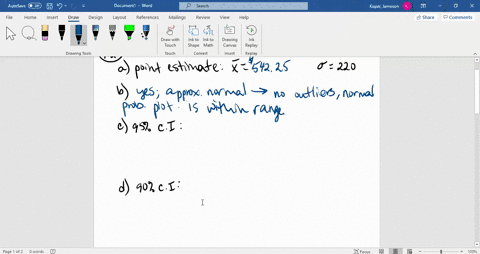 AutoSave Off
Document1 - Word
Search
Kupac, Jameson
File Home Insert Draw Design Layout References Mailings Review View Help
Share Comments
Draw with Touch
Ink to Shape
Ink to Math
Drawing Canvas
Ink Replay
Drawing Tools Touch Convert Insert Replay
a) point estimate: x̄ = $542.25 σ = 220
b) yes; approx. normal → no outliers, normal
prob. plot is within range
c) 95% C.I:
d) 90% C.I:
Page 1 of 2 0 words
Focus 100%